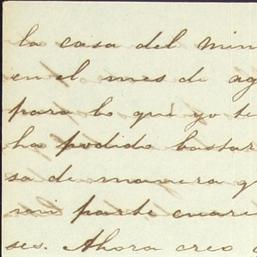 la casa del min
en el mes de ag
para lo que yo te
ha podido bastar
sa de manera q
mi parte cuare
ses. Ahora creo